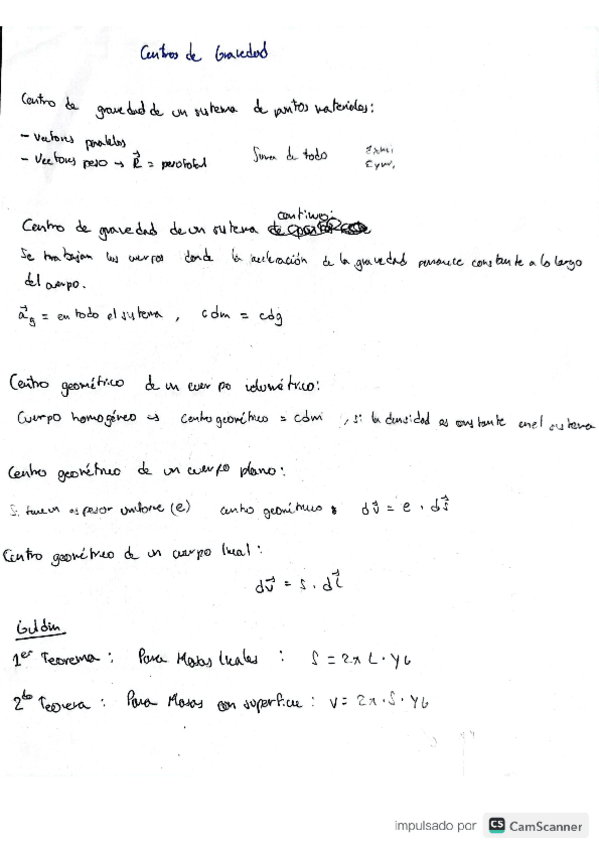 Centros de Gravedad
Centro de gravedad de un sistema de puntos materiales:
- Vectores paralelos
- Vectores peso → R⃗ = peso total Suma de todo Σxmi
Σymi
continuo:
Centro de gravedad de un sistema
Se trabajan los cuerpos donde la aceleración de la gravedad permanece constante a lo largo
del cuerpo.
a⃗g = en todo el sistema, cdm = cdg
Centro geométrico de un cuerpo
Cuerpo homogéneo → centro geométrico = cdm, si la densidad es constante en el sistema
Centro geométrico de un cuerpo plano:
Si tiene espesor uniforme (e) centro geométrico dv⃗ = e · ds⃗
Centro geométrico de un cuerpo lineal:
dv⃗ = s · dl⃗
Guldin
1er Teorema: Para Masas lineales: S = 2π L · yG
2do Teorema: Para Masas con superficie: V = 2π · S · yG
impulsado por CS CamScanner